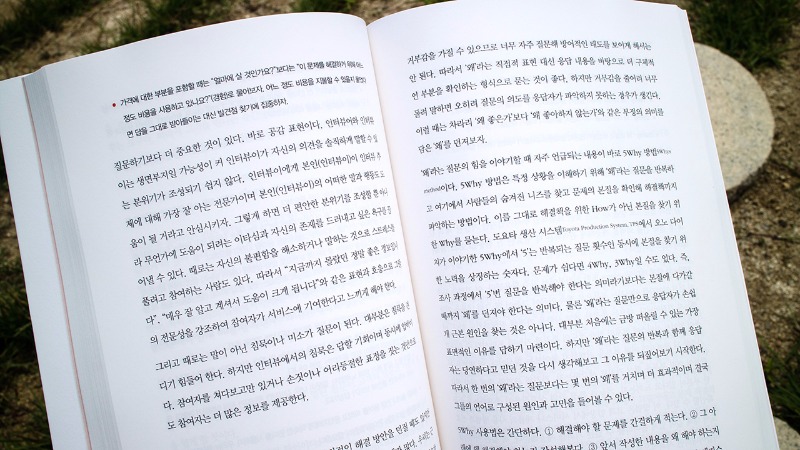 • 가격에 대한 부분을 포함할 때는 "얼마에 살 것인가요?"보다는 "이 문제를 해결하기 위해 어느
정도 비용을 사용하고 있나요?"(경험)로 물어보자. 어느 정도 비용을 지불할 수 있을지 물었다
면 답을 그대로 받아들이는 대신 발견점 찾기에 집중하자.
질문하기보다 더 중요한 것이 있다. 바로 공감 표현이다. 인터뷰어와 인터뷰
이는 생면부지일 가능성이 커 인터뷰이가 자신의 의견을 솔직하게 말할 수 있
는 분위기가 조성되기 쉽지 않다. 인터뷰이에게 본인(인터뷰이)이 인터뷰 주
제에 대해 가장 잘 아는 전문가이며 본인(인터뷰이)의 어떠한 말과 행동도 도
움이 될 거라고 안심시키자. 그렇게 하면 더 편안한 분위기를 조성할 뿐 아니
라 무언가에 도움이 되려는 이타심과 자신의 존재를 드러내고 싶은 욕구를 끌
어낼 수 있다. 때로는 자신의 불편함을 해소하거나 말하는 것으로 스트레스를
풀려고 참여하는 사람도 있다. 따라서 "지금까지 몰랐던 정말 좋은 정보입니
다". "매우 잘 알고 계셔서 도움이 크게 됩니다"와 같은 표현과 호응으로 그들
의 전문성을 강조하여 참여자가 서비스에 기여한다고 느끼게 해야 한다.
그리고 때로는 말이 아닌 침묵이나 미소가 질문이 된다. 대부분은 침묵을 견
디기 힘들어 한다. 하지만 인터뷰에서의 침묵은 답할 기회이며 동시에 압박이
다. 참여자를 쳐다보고만 있거나 손짓이나 어리둥절한 표정을 짓는 것만으로
도 참여자는 더 많은 정보를 제공한다.
해결 방안을 먼저
거부감을 가질 수 있으므로 너무 자주 질문해 방어적인 태도를 보이게 해서는
안 된다. 따라서 '왜'라는 직접적 표현 대신 응답 내용을 바탕으로 더 구체적
인 부분을 확인하는 형식으로 묻는 것이 좋다. 하지만 거부감을 줄이려 너무
돌려 말하면 오히려 질문의 의도를 응답자가 파악하지 못하는 경우가 생긴다.
이럴 때는 차라리 '왜 좋은가'보다 '왜 좋아하지 않는가'와 같은 부정의 의미를
담은 '왜'를 던져보자.
'왜'라는 질문의 힘을 이야기할 때 자주 언급되는 내용이 바로 5Why 방법(5Whys
method)이다. 5Why 방법은 특정 상황을 이해하기 위해 '왜'라는 질문을 반복하
고 여기에서 사람들의 숨겨진 니즈를 찾고 문제의 본질을 확인해 해결책까지
파악하는 방법이다. 이를 그대로 해결책을 위한 How가 아닌 본질을 찾기 위
한 Why를 묻는다. 도요타 생산 시스템Toyota Production System, TPS에서 오노 다이
치가 이야기한 5Why에서 '5'는 반복되는 질문 횟수인 동시에 본질을 찾기 위
한 노력을 상징하는 숫자다. 문제가 쉽다면 4Why, 3Why일 수도 있다. 즉,
조사 과정에서 '5'번 질문을 반복해야 한다는 의미라기보다는 본질에 다가갈
때까지 '왜'를 던져야 한다는 의미다. 물론 '왜'라는 질문만으로 응답자가 손쉽
게 근본 원인을 찾는 것은 아니다. 대부분 처음에는 금방 떠올릴 수 있는 가장
표면적인 이유를 답하기 마련이다. 하지만 '왜'라는 질문의 반복과 함께 응답
자는 당연하다고 믿던 것을 다시 생각해보고 그 이유를 되짚어보기 시작한다.
따라서 한 번의 '왜'라는 질문보다는 몇 번의 '왜'를 거치며 더 효과적이며 결국
그들의 언어로 구성된 원인과 고민을 들어볼 수 있다.
5Why 사용법은 간단하다. ① 해결해야 할 문제를 간결하게 적는다. ② 그 아
③ 앞서 작성한 내용을 왜 해야 하는지